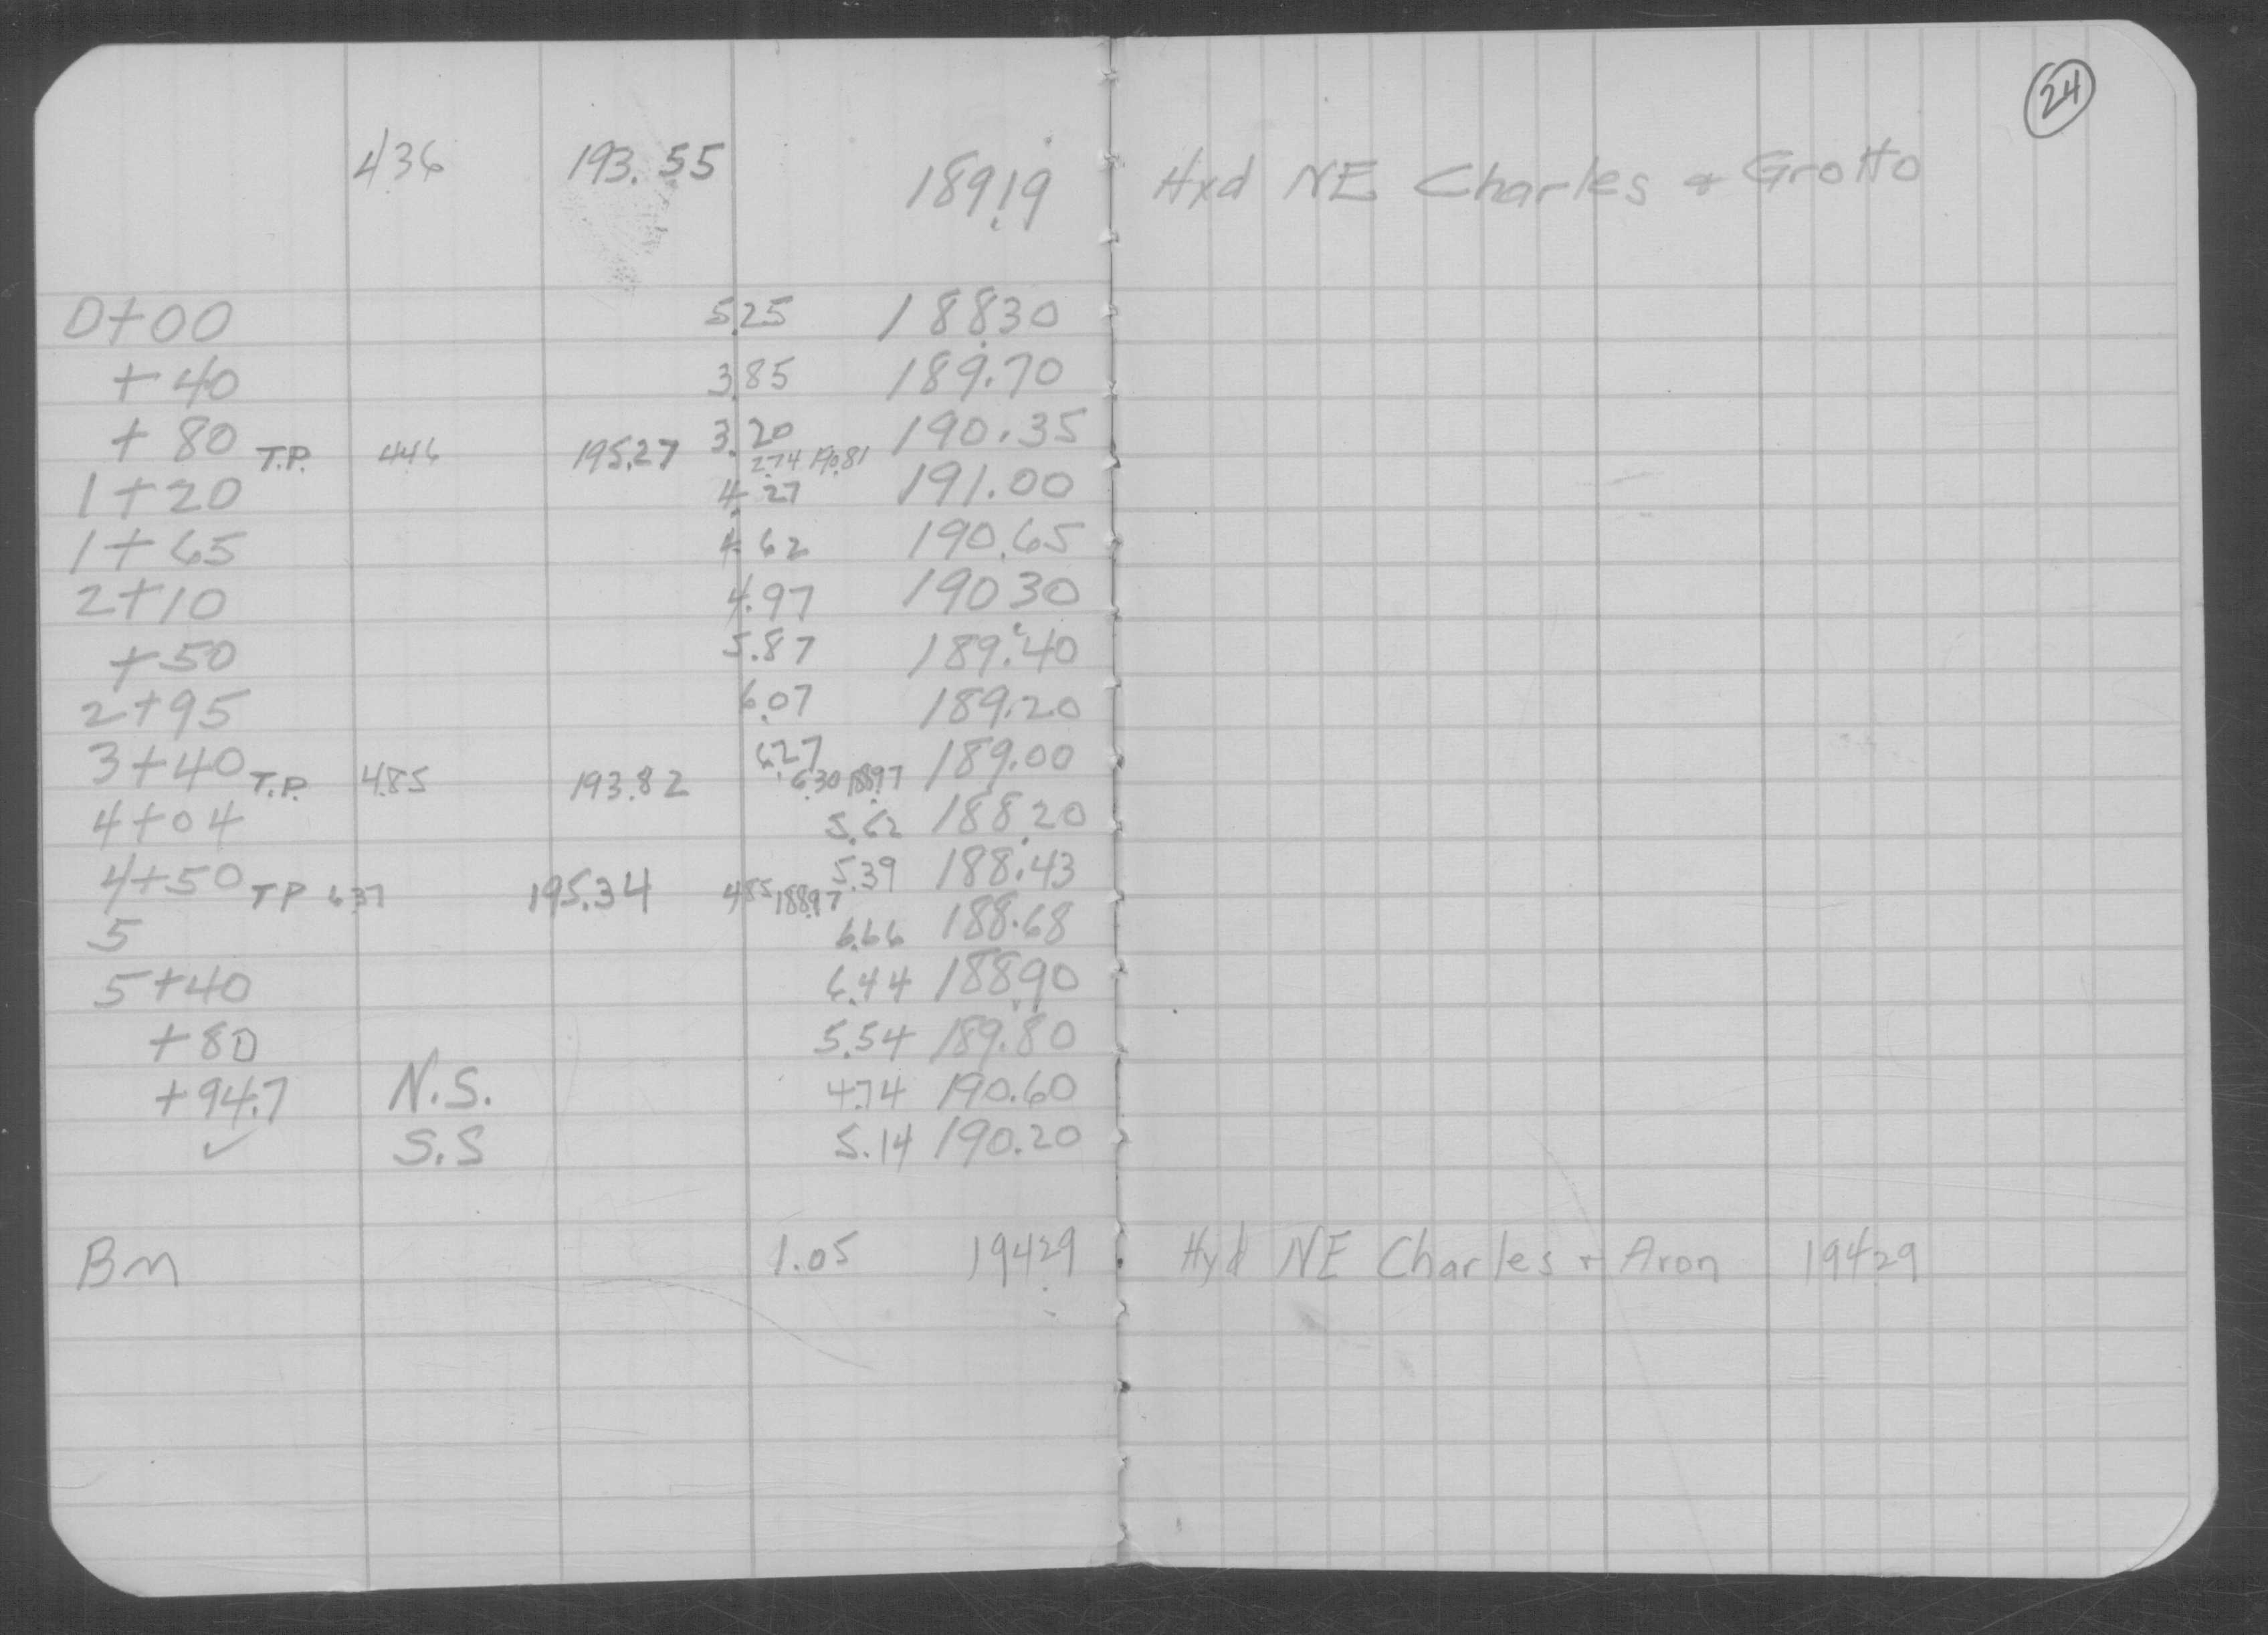 24
4.36 193.55 189.19 Hyd NE Charles & Grotto
0+00 5.25 188.30
+40 3.85 189.70
+80 3.20 190.35
T.P. 4.46 195.27 2.74 190.81
1+20 4.27 191.00
1+65 4.62 190.65
2+10 4.97 190.30
+50 5.87 189.40
2+95 6.07 189.20
3+40 6.27 189.00
T.P. 4.85 193.82 6.30 188.97
4+04 5.62 188.20
4+50 5.39 188.43
T.P 6.37 195.34 4.85 188.97
5 6.66 188.68
5+40 6.44 188.90
+80 5.54 189.80
+94.7 N.S. 4.74 190.60
✓ S.S 5.14 190.20
Bm 1.05 194.29 Hyd NE Charles + Aron 194.29